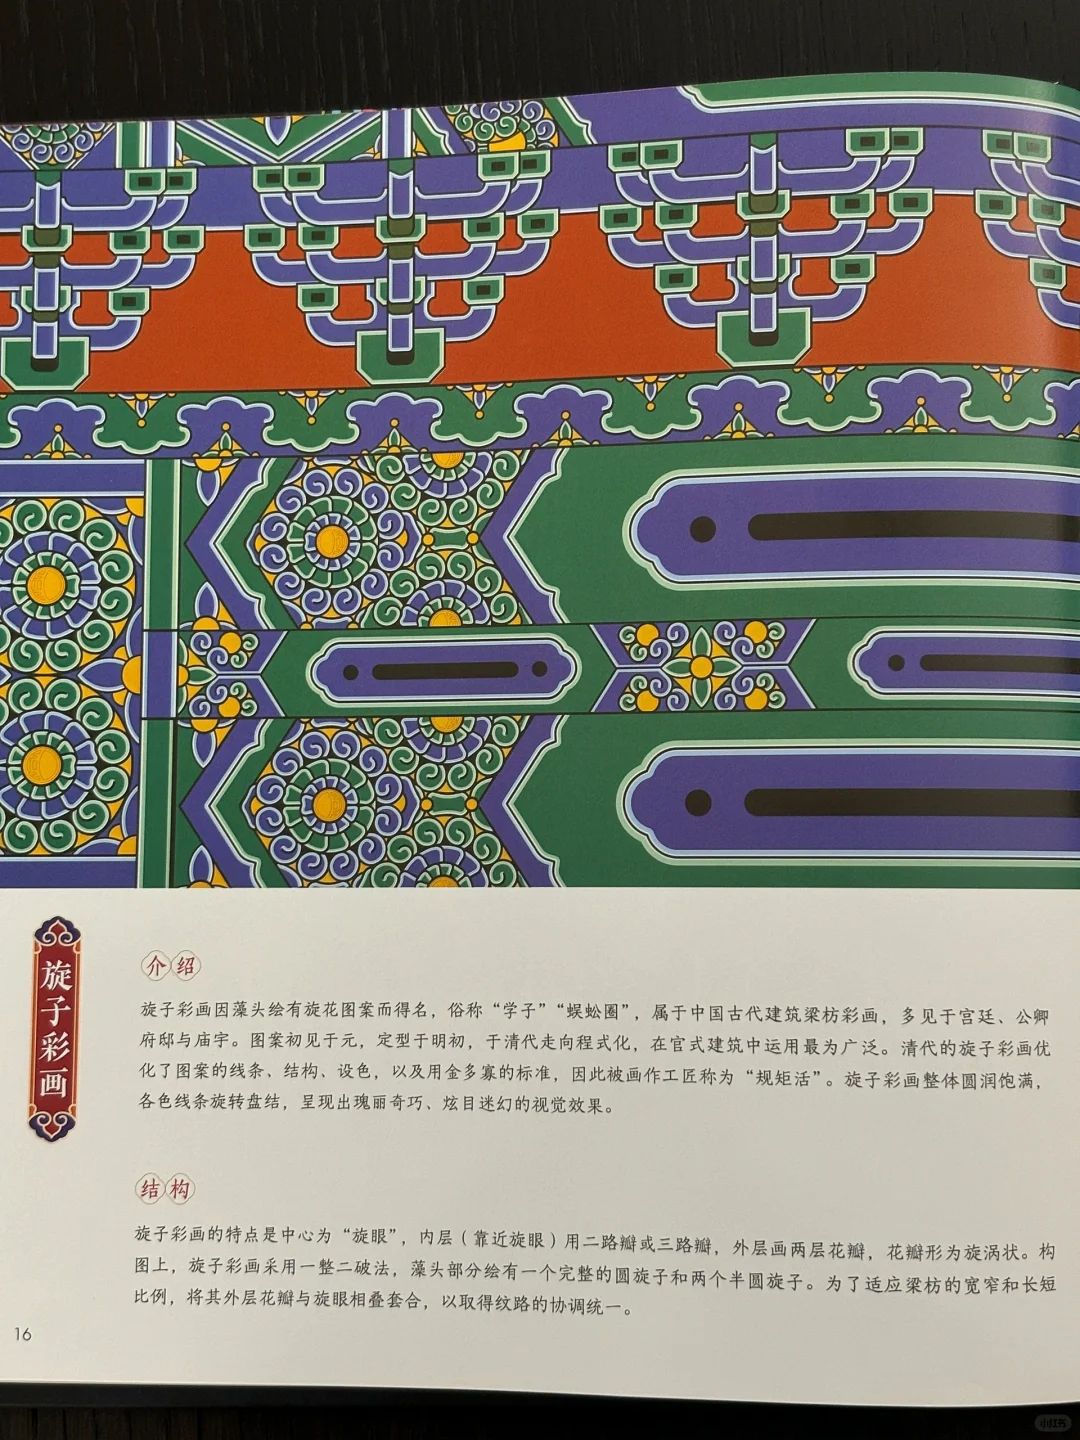 旋子彩画
介绍
旋子彩画因藻头绘有旋花图案而得名，俗称“学子”“蜈蚣圈”，属于中国古代建筑梁枋彩画，多见于宫廷、公卿
府邸与庙宇。图案初见于元，定型于明初，于清代走向程式化，在官式建筑中运用最为广泛。清代的旋子彩画优
化了图案的线条、结构、设色，以及用金多寡的标准，因此被画作工匠称为“规矩活”。旋子彩画整体圆润饱满，
各色线条旋转盘结，呈现出瑰丽奇巧、炫目迷幻的视觉效果。
结构
旋子彩画的特点是中心为“旋眼”，内层（靠近旋眼）用二路瓣或三路瓣，外层画两层花瓣，花瓣形为旋涡状。构
图上，旋子彩画采用一整二破法，藻头部分绘有一个完整的圆旋子和两个半圆旋子。为了适应梁枋的宽窄和长短
比例，将其外层花瓣与旋眼相叠套合，以取得纹路的协调统一。
16
小红书